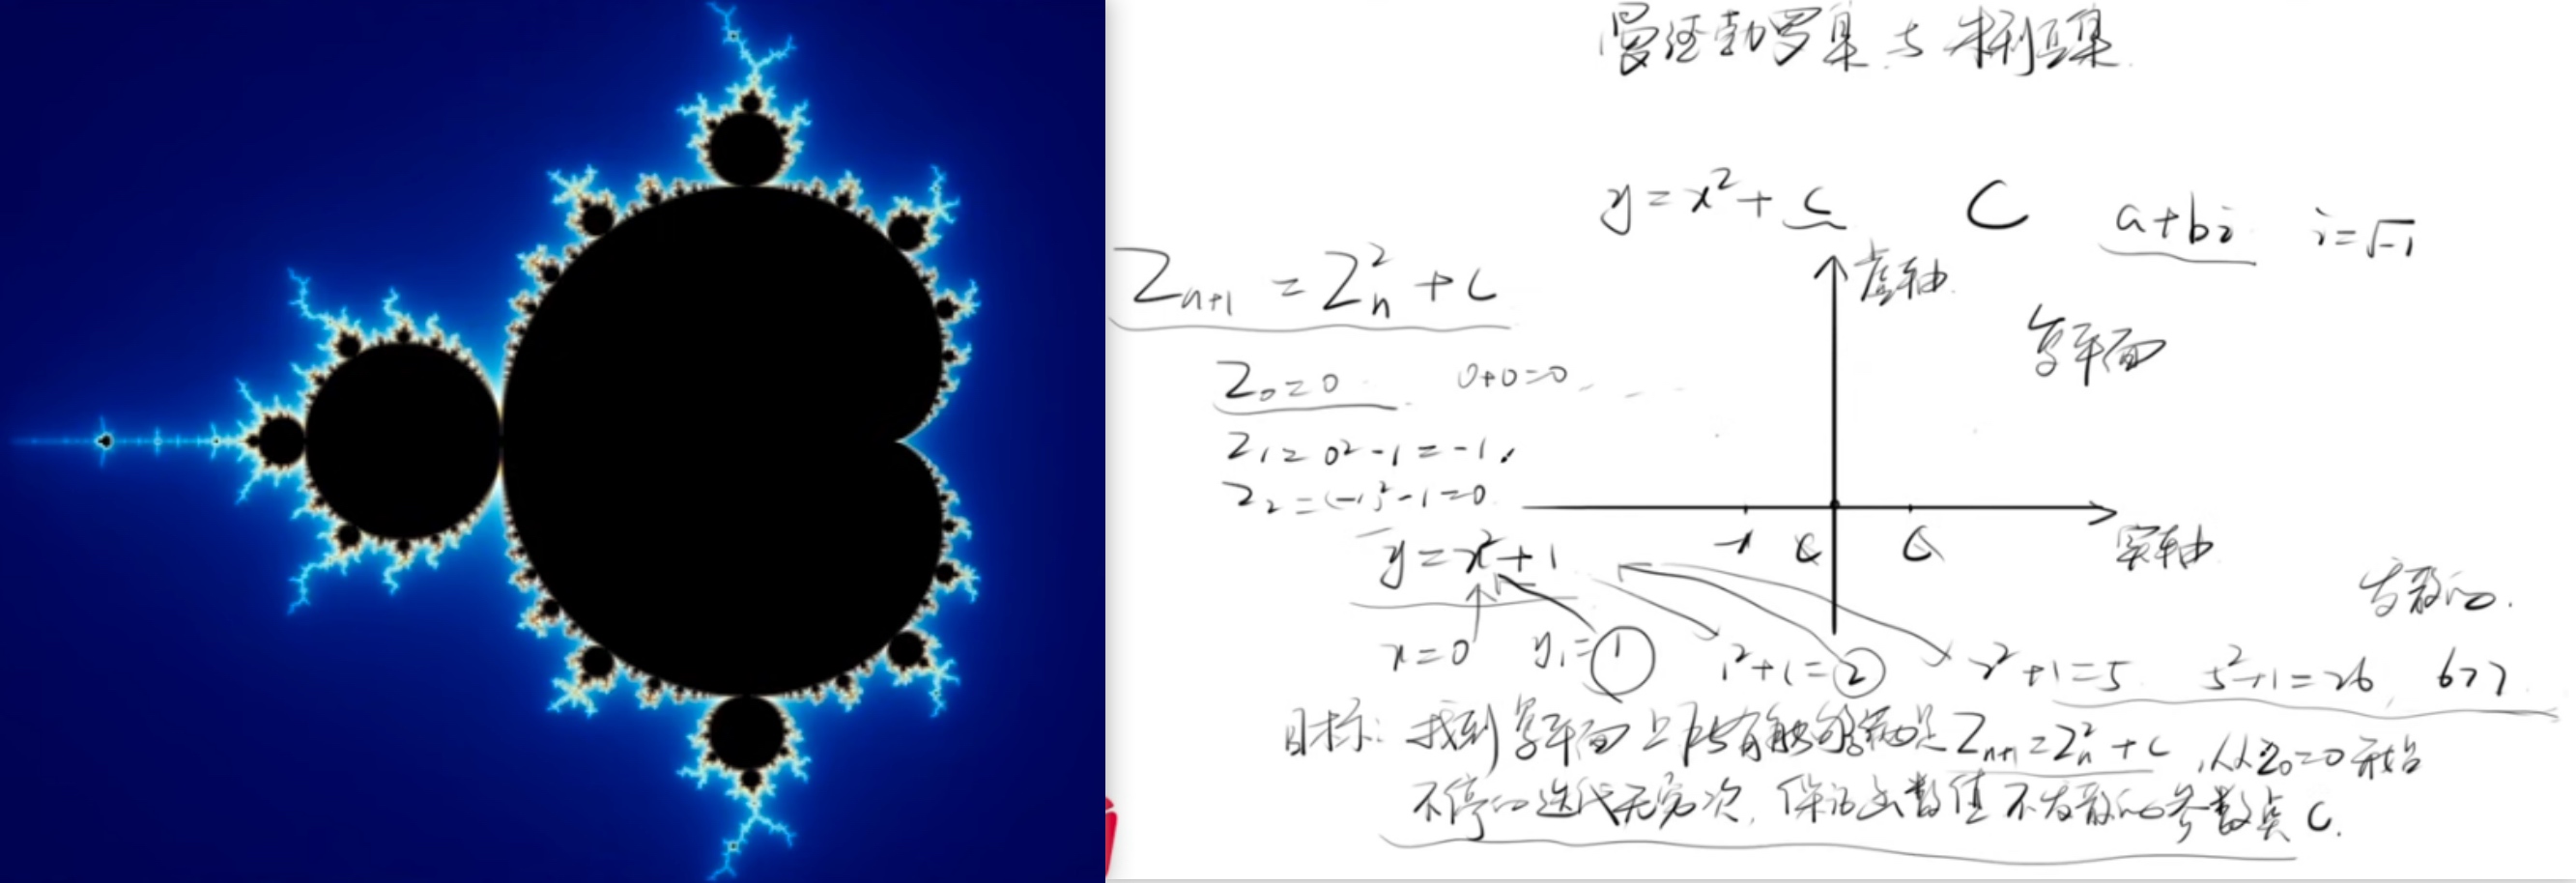 曼德勃罗集与朱利亚集
y=x²+c C a+bi i=√-1
Zn+1 = Zn² + c
虚轴
复平面
Z0=0 0+0=0
Z1=0²-1=-1
Z2=(-1)²-1=0
-1 C C
实轴
y=x²+1
发散的.
x=0 y1=1 1²+1=2 2²+1=5 5²+1=26 677
目标: 找到复平面上所有能够满足Zn+1=Zn²+c,从Z0=0开始
不停的迭代无穷次,保证函数值不发散的参数集C.